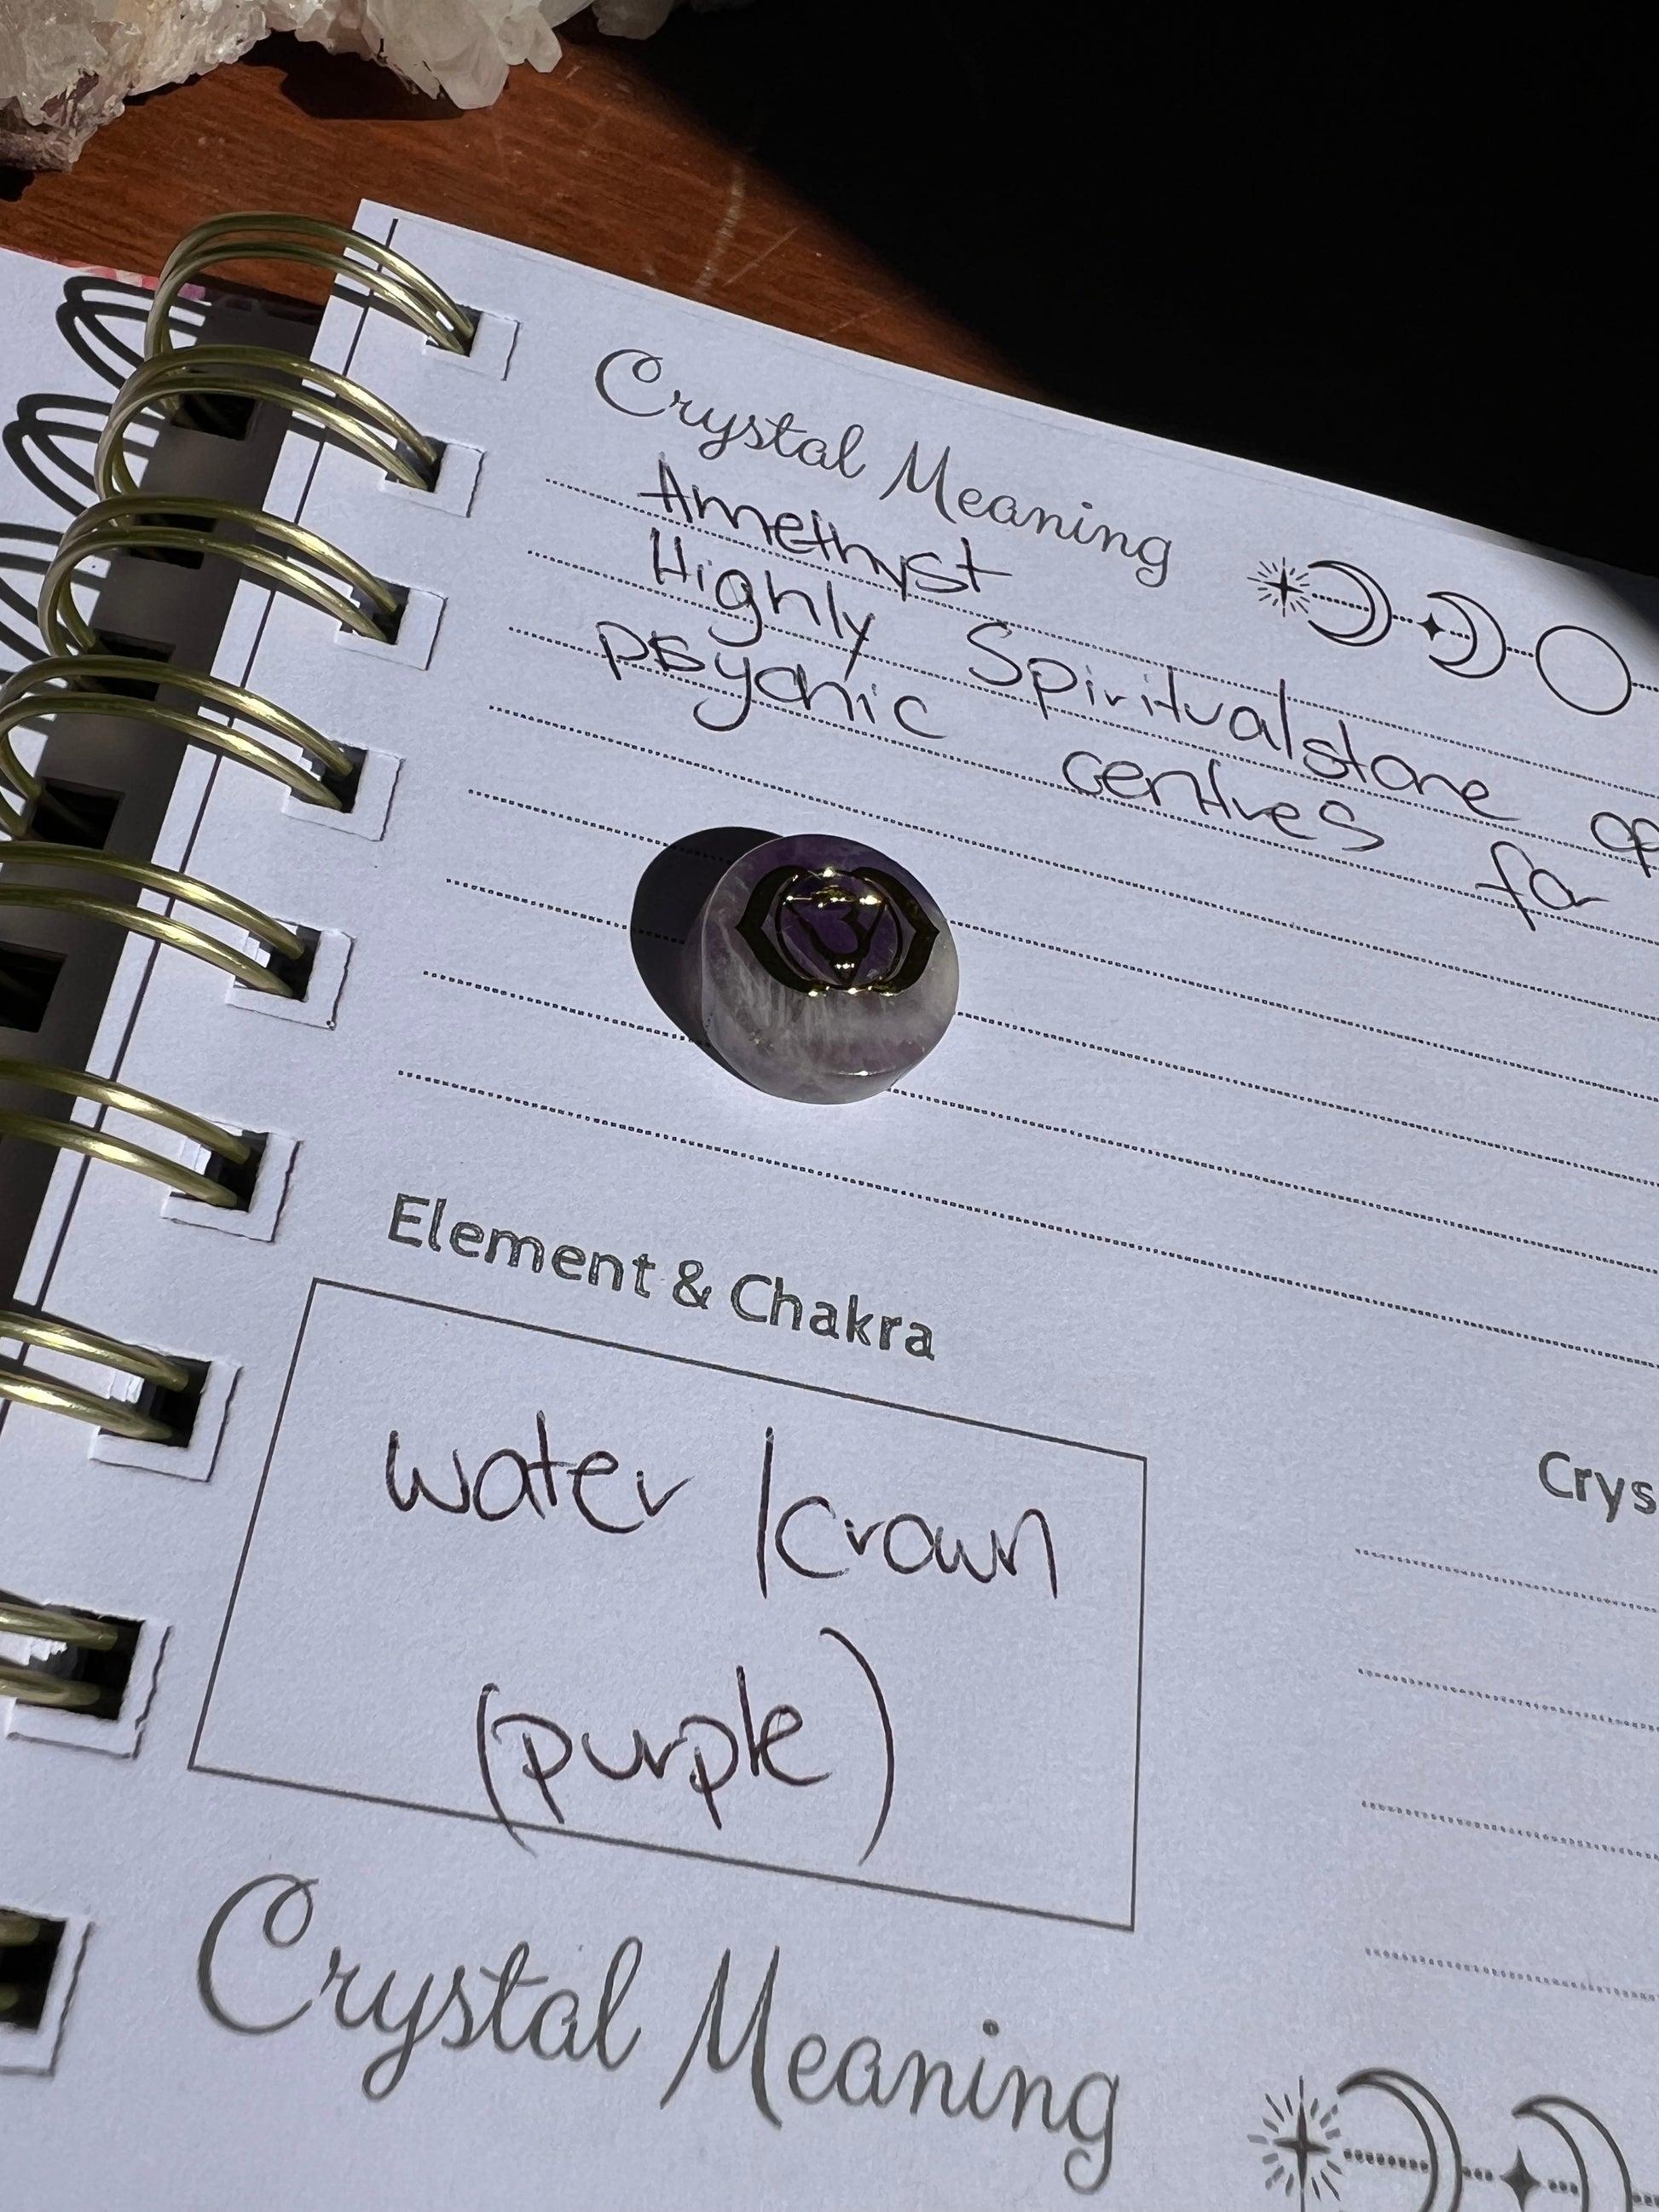 Crystal Meaning
Amethyst
Highly Spiritual stone op
psychic centres for
Element & Chakra
water / crown
(purple)
Crys
Crystal Meaning